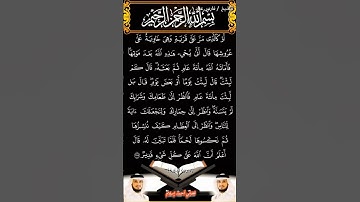 بِسْمِ اللَّهِ الرَّحْمَٰنِ الرَّحِيمِ
أَوْ كَالَّذِي مَرَّ عَلَىٰ قَرْيَةٍ وَهِيَ خَاوِيَةٌ عَلَىٰ
عُرُوشِهَا قَالَ أَنَّىٰ يُحْيِي هَٰذِهِ اللَّهُ بَعْدَ مَوْتِهَا
فَأَمَاتَهُ اللَّهُ مِائَةَ عَامٍ ثُمَّ بَعَثَهُ قَالَ كَمْ
لَبِثْتَ قَالَ لَبِثْتُ يَوْمًا أَوْ بَعْضَ يَوْمٍ قَالَ بَل
لَّبِثْتَ مِائَةَ عَامٍ فَانظُرْ إِلَىٰ طَعَامِكَ وَشَرَابِكَ
لَمْ يَتَسَنَّهْ وَانظُرْ إِلَىٰ حِمَارِكَ وَلِنَجْعَلَكَ آيَةً
لِّلنَّاسِ وَانظُرْ إِلَى الْعِظَامِ كَيْفَ نُنشِزُهَا
ثُمَّ نَكْسُوهَا لَحْمًا فَلَمَّا تَبَيَّنَ لَهُ قَالَ
أَعْلَمُ أَنَّ اللَّهَ عَلَىٰ كُلِّ شَيْءٍ قَدِيرٌ